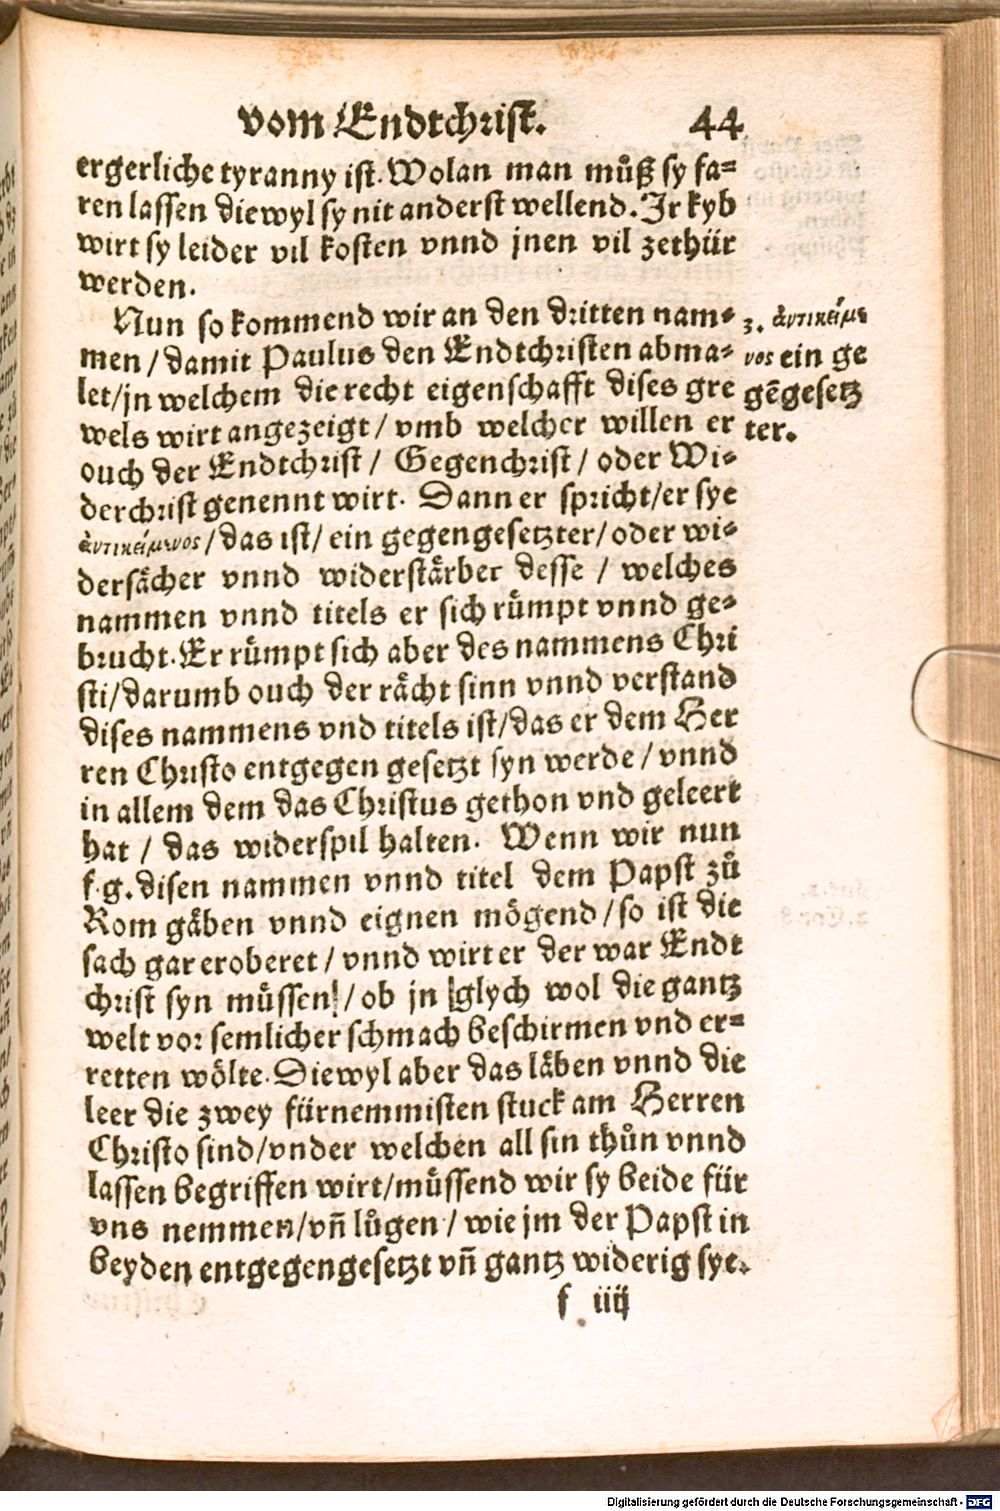 vom Endtchrist. 44
ergerliche tyranny ist. Wolan man muͦß sy fa⸗
ren lassen diewyl sy nit anderst wellend. Ir kyb
wirt sy leider vil kosten vnnd jnen vil zethür
werden.
Nun so kommend wir an den dritten nam⸗
men / damit Paulus den Endtchristen abma⸗
let/jn welchem die recht eigenschafft dises gre
wels wirt angezeigt / vmb welcher willen er
ouch der Endtchrist / Gegenchrist / oder Wi⸗
derchrist genennt wirt. Dann er spricht/er sye
ἀντικείμενος / das ist/ ein gegengesetzter/ oder wi⸗
dersächer vnnd widerstärber desse / welches
nammen vnnd titels er sich rümpt vnnd ge⸗
brucht. Er rümpt sich aber des nammens Chri
sti/darumb ouch der rächt sinn vnnd verstand
dises nammens vnd titels ist/das er dem Her
ren Christo entgegen gesetzt syn werde / vnnd
in allem dem das Christus gethon vnd geleert
hat / das widerspil halten. Wenn wir nun
f.g. disen nammen vnnd titel dem Papst zuͦ
Rom gäben vnnd eignen mögend / so ist die
sach gar eroberet / vnnd wirt er der war Endt
christ syn müssen / ob jn glych wol die gantz
welt vor semlicher schmach beschirmen vnd er⸗
retten wölte. Diewyl aber das läben vnnd die
leer die zwey fürnemmisten stuck am Herren
Christo sind/vnder welchen all sin thuͦn vnnd
lassen begriffen wirt/müssend wir sy beide für
vns nemmen/vñ luͦgen / wie jm der Papst in
beyden entgegengesetzt vñ gantz widerig sye.
f iiij
3. ἀντικείμε
νος ein ge
gẽgesetz
ter.
Digitalisierung gefördert durch die Deutsche Forschungsgemeinschaft - DFG